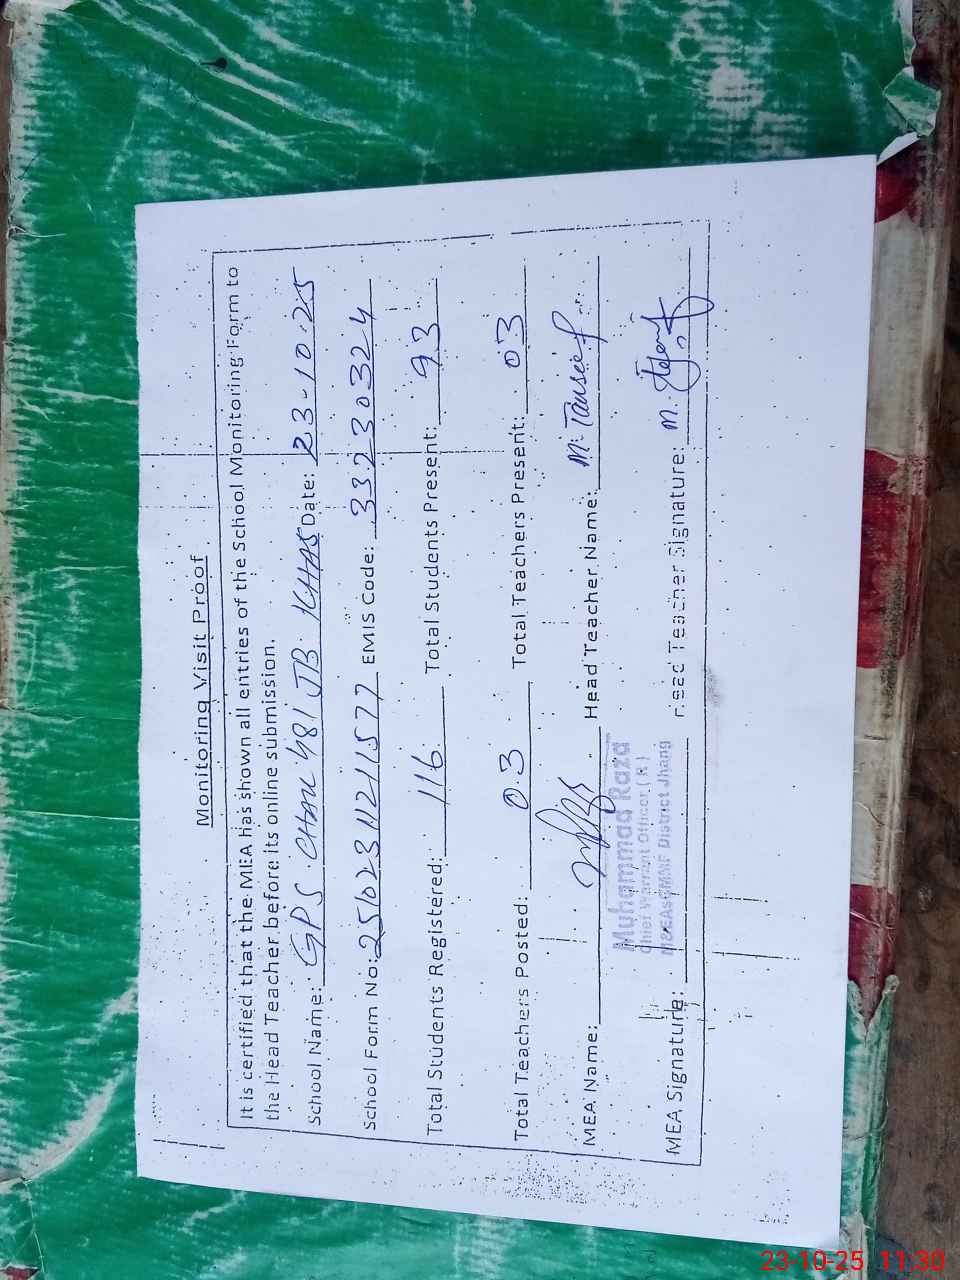 Monitoring Visit Proof
It is certified that the MEA has shown all entries of the School Monitoring Form to
the Head Teacher before its online submission.
School Name: GPS CHAK 481 JB KHAS Date: 23-10-25
School Form No: 251023112111577 EMIS Code: 33230324
Total Students Registered: 116 Total Students Present: 93
Total Teachers Posted: 03 Total Teachers Present: 03
MEA Name: Head Teacher Name: M. Tauseef
Muhammad Raza
Chief Warrant Officer ( R )
M&EAs CMMF District Jhang
MEA Signature: Head Teacher Signature: M.
23-10-25 11:30